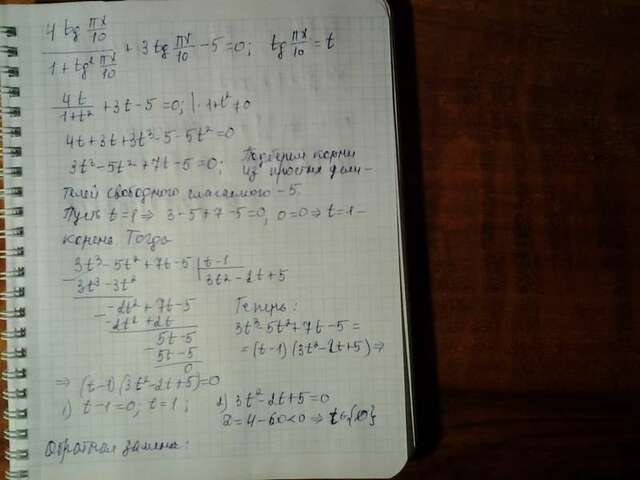 4 tg πx/10 / 1 + tg² πx/10 + 3 tg πx/10 - 5 = 0; tg πx/10 = t
4t / 1+t² + 3t - 5 = 0; | · 1+t² ≠ 0
4t + 3t + 3t³ - 5 - 5t² = 0
3t³ - 5t² + 7t - 5 = 0; Подберем корни
из простых дели-
телей свободного слагаемого -5.
Пусть t = 1 ⇒ 3 - 5 + 7 - 5 = 0, 0 = 0 ⇒ t = 1 -
корень. Тогда
3t³ - 5t² + 7t - 5 | t - 1
- 3t³ - 3t² 3t² - 2t + 5
- -2t² + 7t - 5
-2t² + 2t
- 5t - 5
5t - 5
0
Теперь:
3t³ - 5t² + 7t - 5 =
= (t-1)(3t² - 2t + 5) ⇒
⇒ (t-1)(3t² - 2t + 5) = 0
1) t - 1 = 0; t = 1; 2) 3t² - 2t + 5 = 0
D = 4 - 60 < 0 ⇒ t ∈ {∅}
Обратная замена: